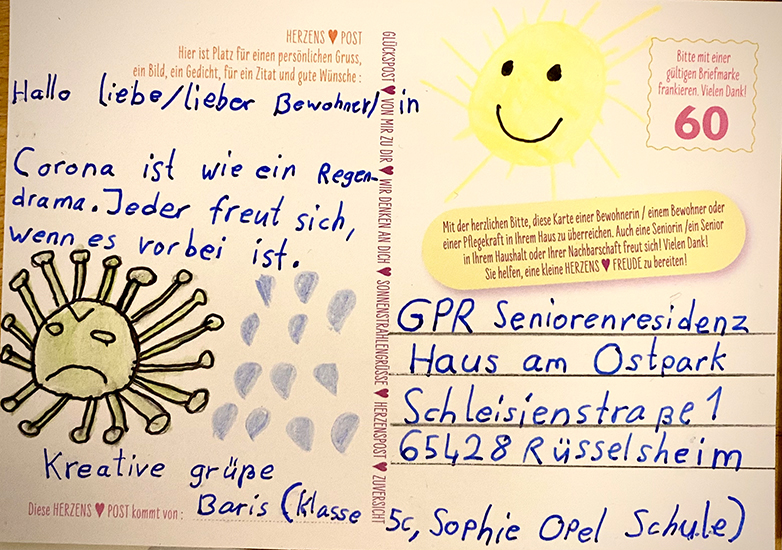 HERZENS ♥ POST
Hier ist Platz für einen persönlichen Gruss,
ein Bild, ein Gedicht, für ein Zitat und gute Wünsche :
Hallo liebe/lieber Bewohner/in
Corona ist wie ein Regen-
drama. Jeder freut sich,
wenn es vorbei ist.
Kreative grüße
Diese HERZENS ♥ POST kommt von :
Baris (Klasse 5c, Sophie Opel Schule)
GLÜCKSPOST ♥ VON MIR ZU DIR ♥ WIR DENKEN AN DICH ♥ SONNENSTRAHLENGRÜSSE ♥ HERZENSPOST ♥ ZUVERSICHT
Bitte mit einer
gültigen Briefmarke
frankieren. Vielen Dank!
60
Mit der herzlichen Bitte, diese Karte einer Bewohnerin / einem Bewohner oder
einer Pflegekraft in Ihrem Haus zu überreichen. Auch eine Seniorin /ein Senior
in Ihrem Haushalt oder Ihrer Nachbarschaft freut sich! Vielen Dank!
Sie helfen, eine kleine HERZENS ♥ FREUDE zu bereiten!
GPR Seniorenresidenz
Haus am Ostpark
Schleisienstraße 1
65428 Rüsselsheim